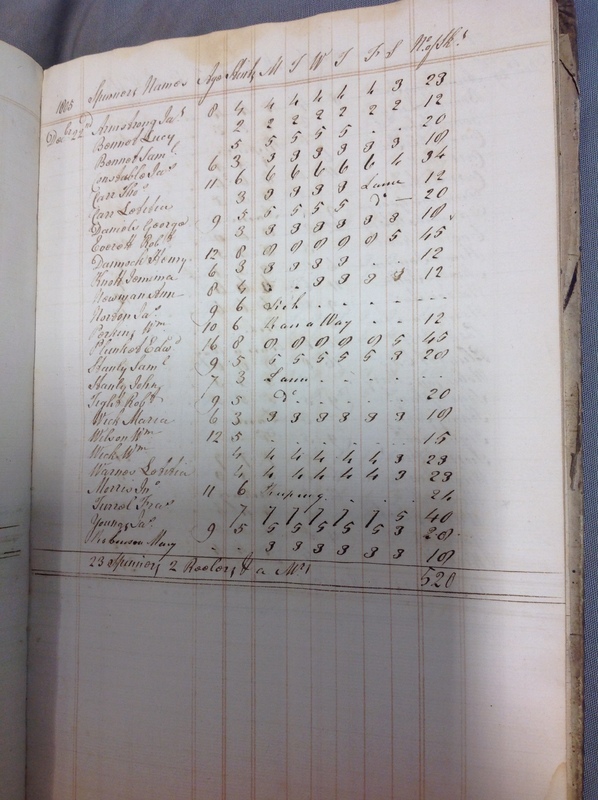 1805 Spinners Names Age Stint M T W T F S No. of Sks.
Decr. 22nd Armstrong Jas. 8 4 4 4 4 4 4 3 23
Bennet Lucy 2 2 2 2 2 2 2 12
Bennet Saml. 5 5 5 5 5 . . 20
Constable Jas. 6 3 3 3 3 3 3 3 18
Carr Thos. 11 6 6 6 6 6 6 4 34
Carr Letitia 3 3 3 3 3 Lame 12
Daniels George 9 5 5 5 5 5 Do. — 20
Everett Robt. 3 3 3 3 3 3 3 18
Dannock Henry 12 8 8 8 8 8 8 5 45
Knott Jemima 6 3 3 3 3 3 . . 12
Newman Ann 8 4 . . 3 3 3 3 12
Norton Jas. 9 6 Sick . . . . - - -
Perkins Wm. 10 6 Ran a Way . . 12
Plunket Edwd. 16 8 8 8 8 8 8 5 45
Stanly Saml. 9 5 5 5 5 5 5 3 28
Stanly John 7 3 Lame . . . .
Tight Robt. 9 5 Do. . . . . . 20
Wick Maria 6 3 3 3 3 3 3 3 18
Wilson Wm. 12 5 . . . . . . 15
Wick Wm. 4 4 4 4 4 4 3 23
Warnes Letitia 4 4 4 4 4 4 3 23
Morris Jno. 11 6 . . . 24
Turrol Fras. 7 7 7 7 7 7 5 40
Youngs Jas. 9 5 5 5 5 5 5 3 28
Robinson Mary . . . 3 3 3 3 3 3 18
23 Spinners 2 Reelers & a Mrs. 520